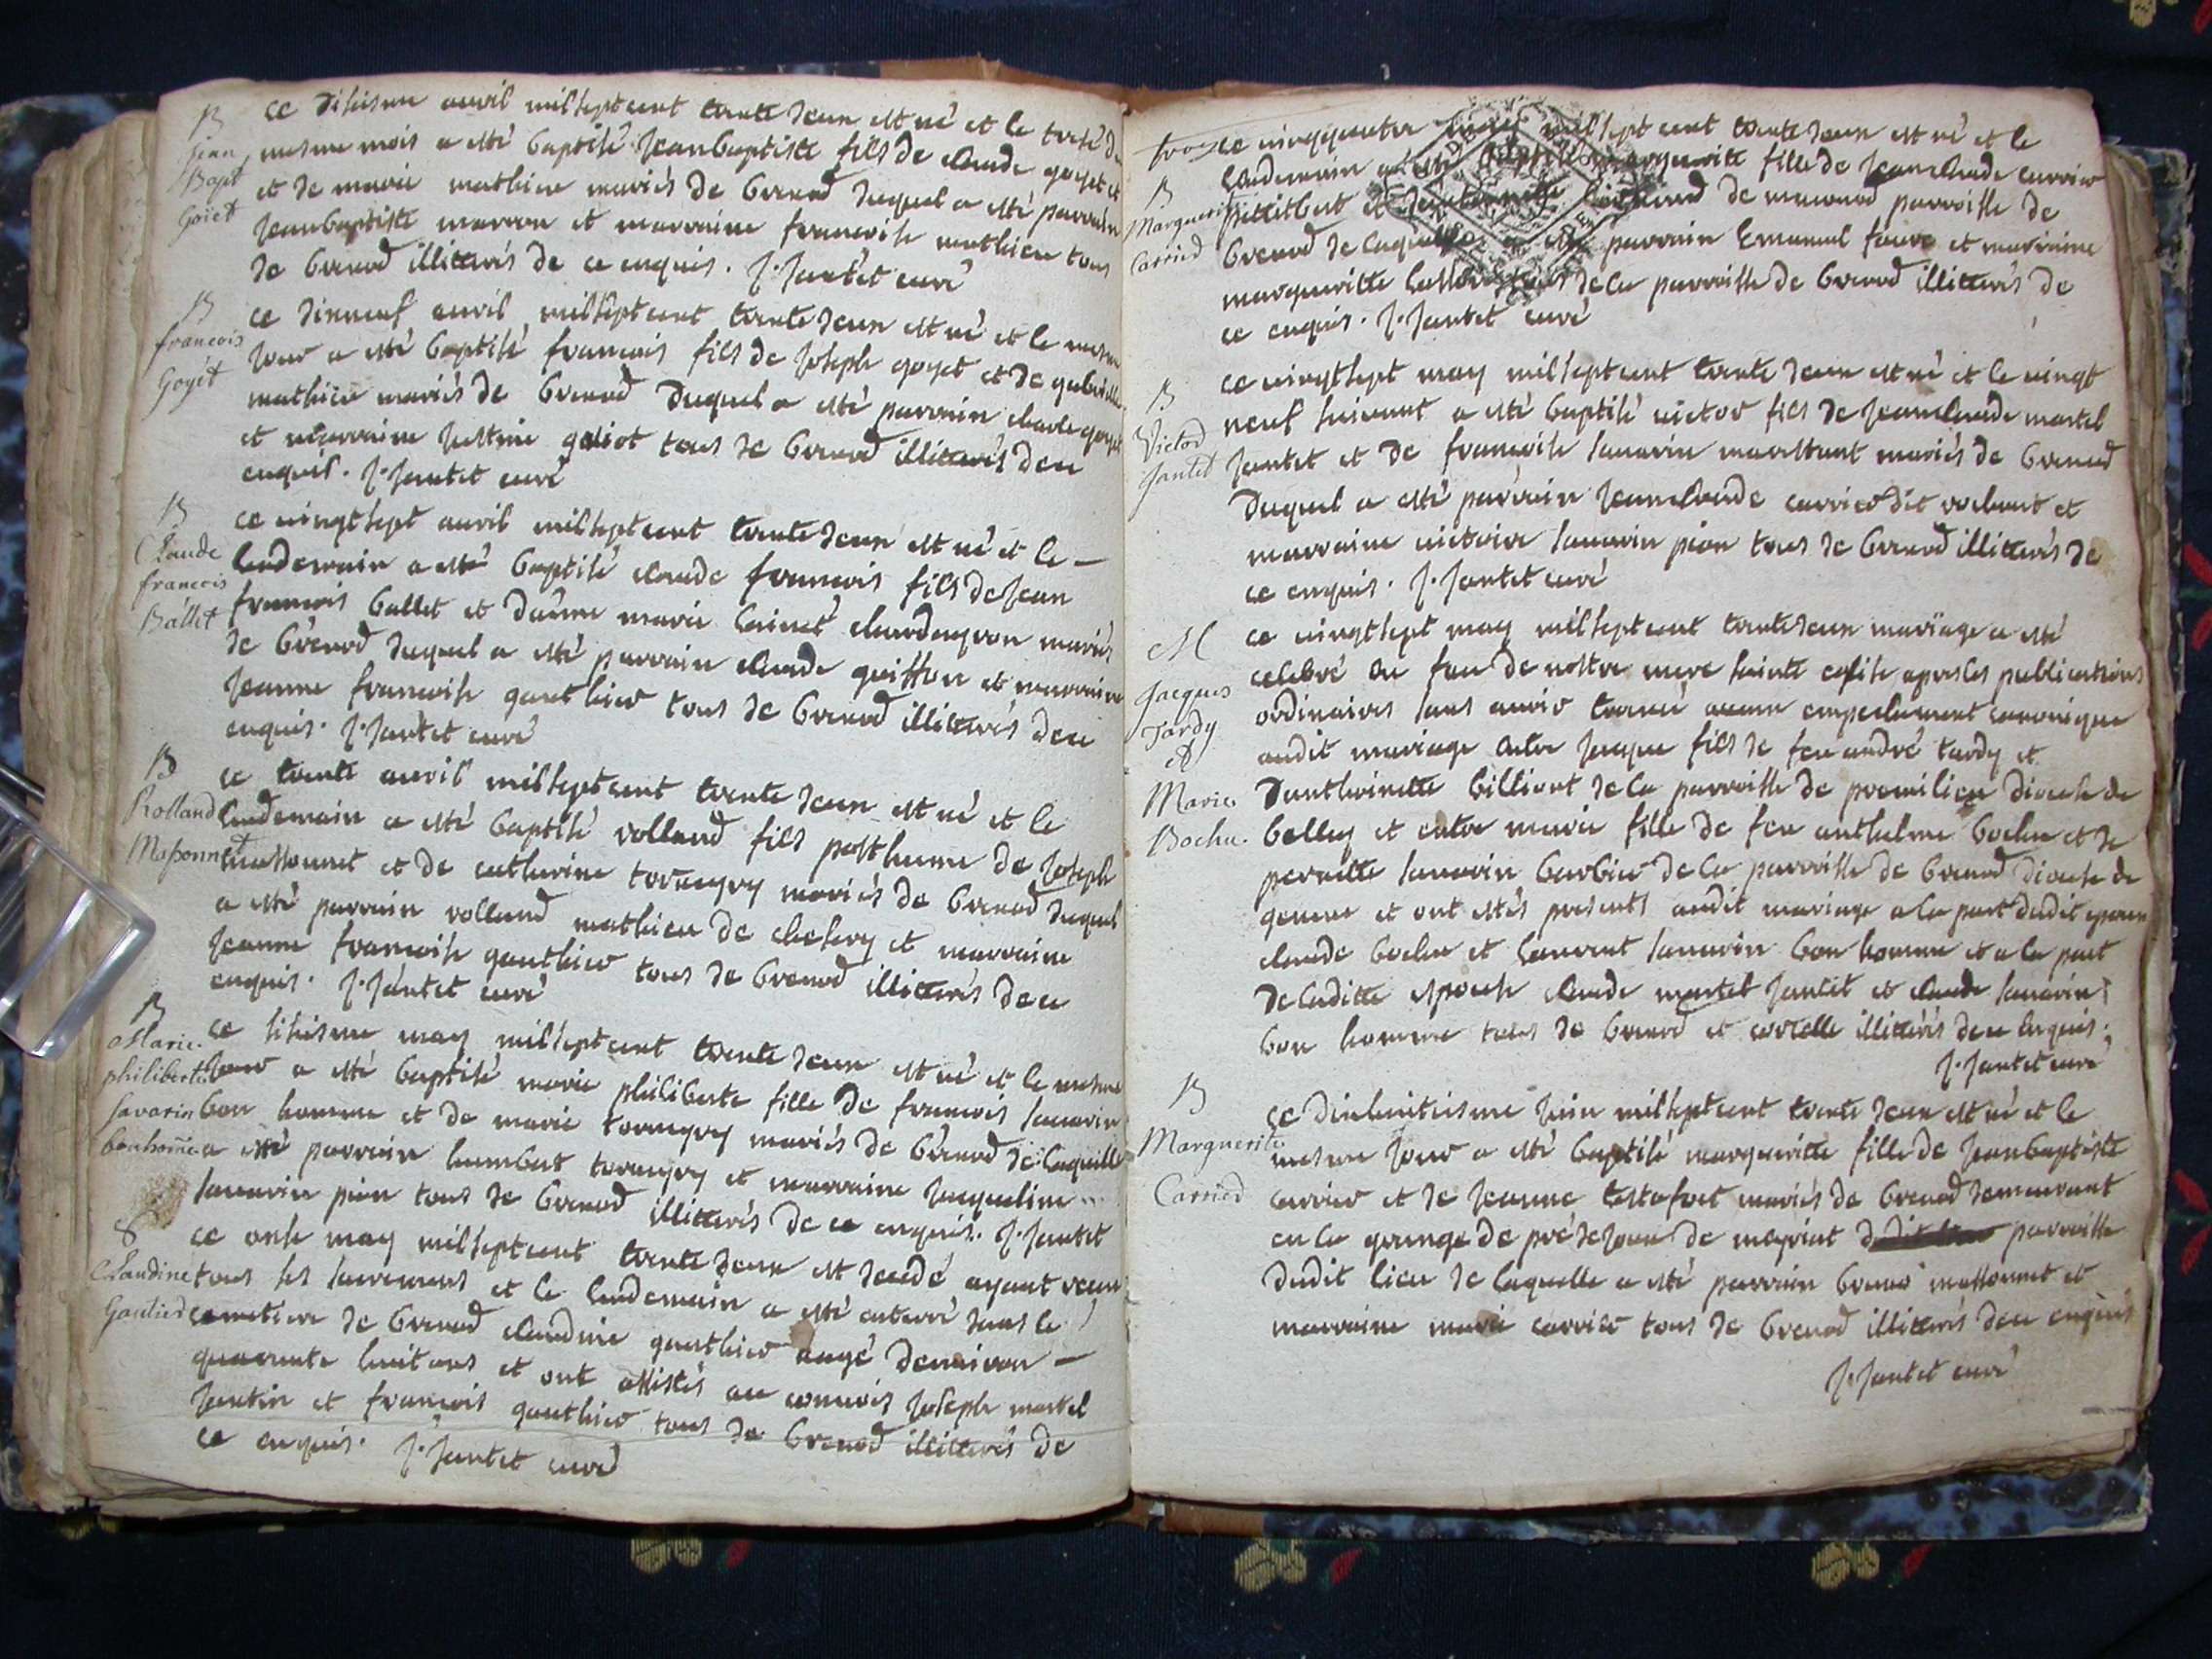 B
Jean
Bapt
Goïet
ce disiesme avril milseptcent trente deux est né et le
mesme mois a esté baptisé Jeanbaptiste fils de claude goyet et
et de marie mathieu mariés de brenod duquel a esté parrain
Jeanbaptiste marron et marraine francoise mathieu tous
de brenod illiterés de ce enquis. J. Jantet curé
B
francois
Goyét
ce dixneuf avril milseptcent trente deux est né et le mesme
Jour a esté baptisé francois fils de Joseph goyet et de gabrielle
mathieu mariés de brenod duquel a esté parrain claude goyet
et marraine Justine galiot tous de brenod illiterés dece
enquis. J. Jantet curé
B
Claude
francois
Ballet
ce vingtsept avril milseptcent trente deux est né et le
lendemain a esté baptisé claude francois fils de Jean
francois ballet et danne marie chardeyron mariés
de brenod duquel a esté parrain claude guisson et marraine
Jeanne francoise gauthier tous de brenod illiterés dece
enquis. J. Jantet curé
B
Rolland
Massonnet
ce trente avril milseptcent trente deux est né et le
lendemain a esté baptisé rolland fils posthume de Joseph
massonnet et de catherine torangry mariés de brenod duquel
a esté parrain rolland mathieu de chesery et marraine
Jeanne francoise gauthier tous de brenod illiterés dece
enquis. J. Jantet curé
B
Marie
philiberte
Savarin
bonhome
ce sisiesme may milseptcent trente deux est né et le mesme
Jour a esté baptisé marie philiberte fille de francois savarin
bon homme et de marie torangry mariés de brenod de laquelle
a esté parrain humbert torangry et marraine Jacqueline
savarin pion tous de brenod illiterés de ce enquis. J. Jantet
S
Claudine
Gautied
ce onse may milseptcent trente deux est decedé ayant receu
tous les sacremens et le lendemain a esté enterré dans le
cemetiere de brenod claudine gauthier aagé denviron
quarante huit ans et ont assistés au convois Joseph martel
Jantin et francois gauthier tous de brenod illiterés de
ce enquis. J. Jantet curé
B
Marguerite
Carried
ce cinqquieme may milsept cent trente deux est né et le
lendemain a esté baptisé marguerite fille de Jeanclaude carrier
pettitbert et de macounod parroisse de
brenod de laquelle a esté parrain Emanuel favre et marraine
marguerite tous de la parroisse de brenod illiterés de
ce enquis. J. Jantet curé
B
Victod
Jantet
ce vingtsept may milseptcent trente deux est né et le vingt
neuf suivant a esté baptisé victor fils de Jeanclaude martel
Jantet et de francoise savarin marestant mariés de brenod
duquel a esté parrain Jeanclaude carrier dit rochant et
marraine victoire savarin pion tous de brenod illiterés de
ce enquis. J. Jantet curé
M
Jacques
Tardy
&
Marie
Bochu.
ce vingtsept may milseptcent trente deux mariage a esté
celebré en face de nostre mere sainte eglise apres les publications
ordinaires sans avoir trouvé aucun empechement canonique
audit mariage entre Jaque fils de feu andré tardy et
danthoinette billiont de la parroisse de premilieu diocese de
belley et entre marie fille de feu anthelme bochu et de
pernette savarin barbier de la parroisse de brenod diocese de
geneve et ont estés presents audit mariage a la part dudit epoux
claude bochu et laurent savarin bon homme et a la part
de laditte espouse claude martel Jantet et claude savarin
bon homme tous de brenod et corcelle illiterés dece enquis.
J. Jantet curé
B
Marguerite
Carried
ce dixhuitiesme Juin milseptcent trente deux est né et le
mesme Jour a esté baptisé marguerite fille de Jeanbaptiste
carrier et de Jeanne testafort mariés de brenod demeurant
en la grange de pré de Joux de meyriat parroisse
dudit lieu de laquelle a esté parrain massonnet et
marraine marie carrier tous de brenod illiterés dece enquis
J. Jantet curé